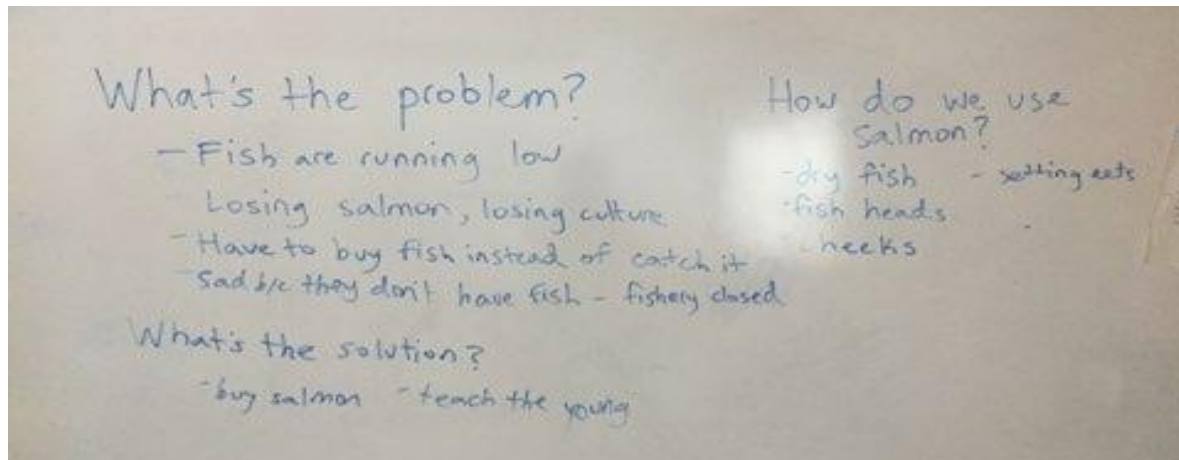 What's the problem?
- Fish are running low
Losing salmon, losing culture
- Have to buy fish instead of catch it
- Sad b/c they don't have fish - fishery closed
What's the solution?
- buy salmon - teach the young
How do we use
salmon?
- dry fish - setting
- fish heads
- cheeks